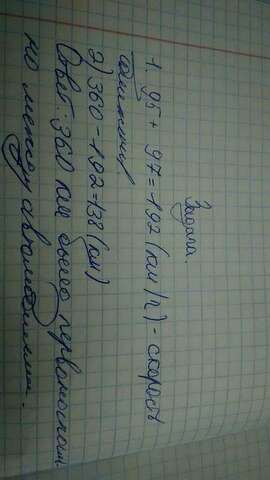 Задача.
1. 95 + 97 = 192 (км/ч) - скорость
сближения
2) 360 - 192 = 138 (км)
Ответ: 360 км было первоначаль
но между автомобилями.